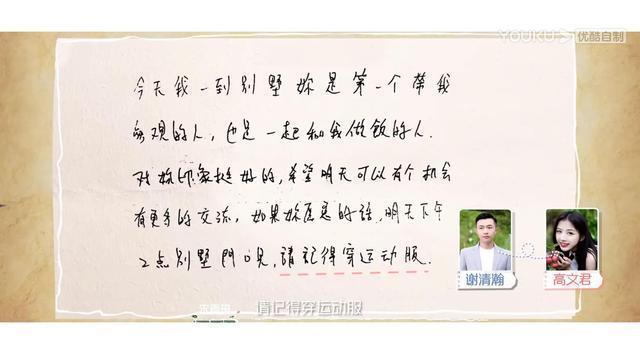 YOUKU 优酷自制
今天我一到别墅妳是第一个带我
参观的人,也是一起和我做饭的人.
对妳印象挺好的,希望明天可以有个机会
有更多的交流,如果妳愿意的话,明天下午
2点别墅門口見,請记得穿运动服.
谢清瀚
高文君
请记得穿运动服